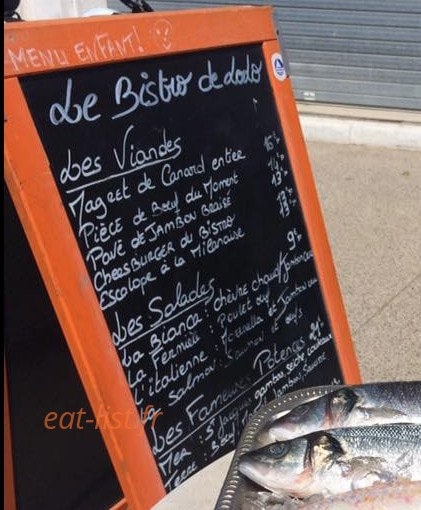 MENU ENFANT!
Le Bistro de Dodo
Les Viandes
Magret de Canard entier 16€
Pièce de Bœuf du Moment 14€
Pavé de Jambon Braisé 13€
Cheesburger du Bistro
Escalope à la Milanaise 13€
Les Salades 9€
La Biance: chèvre chaud, Jambon cru
La Fermière: Poulet œuf
L'italienne: Mozzarella et Jambon cru
Salmon: Saumon et œufs
Les Fameuses Potences 21€
Mer: St Jacques gambas, seiche, couteaux
Terre: Bœuf Jambon, Savoie
eat-list.fr